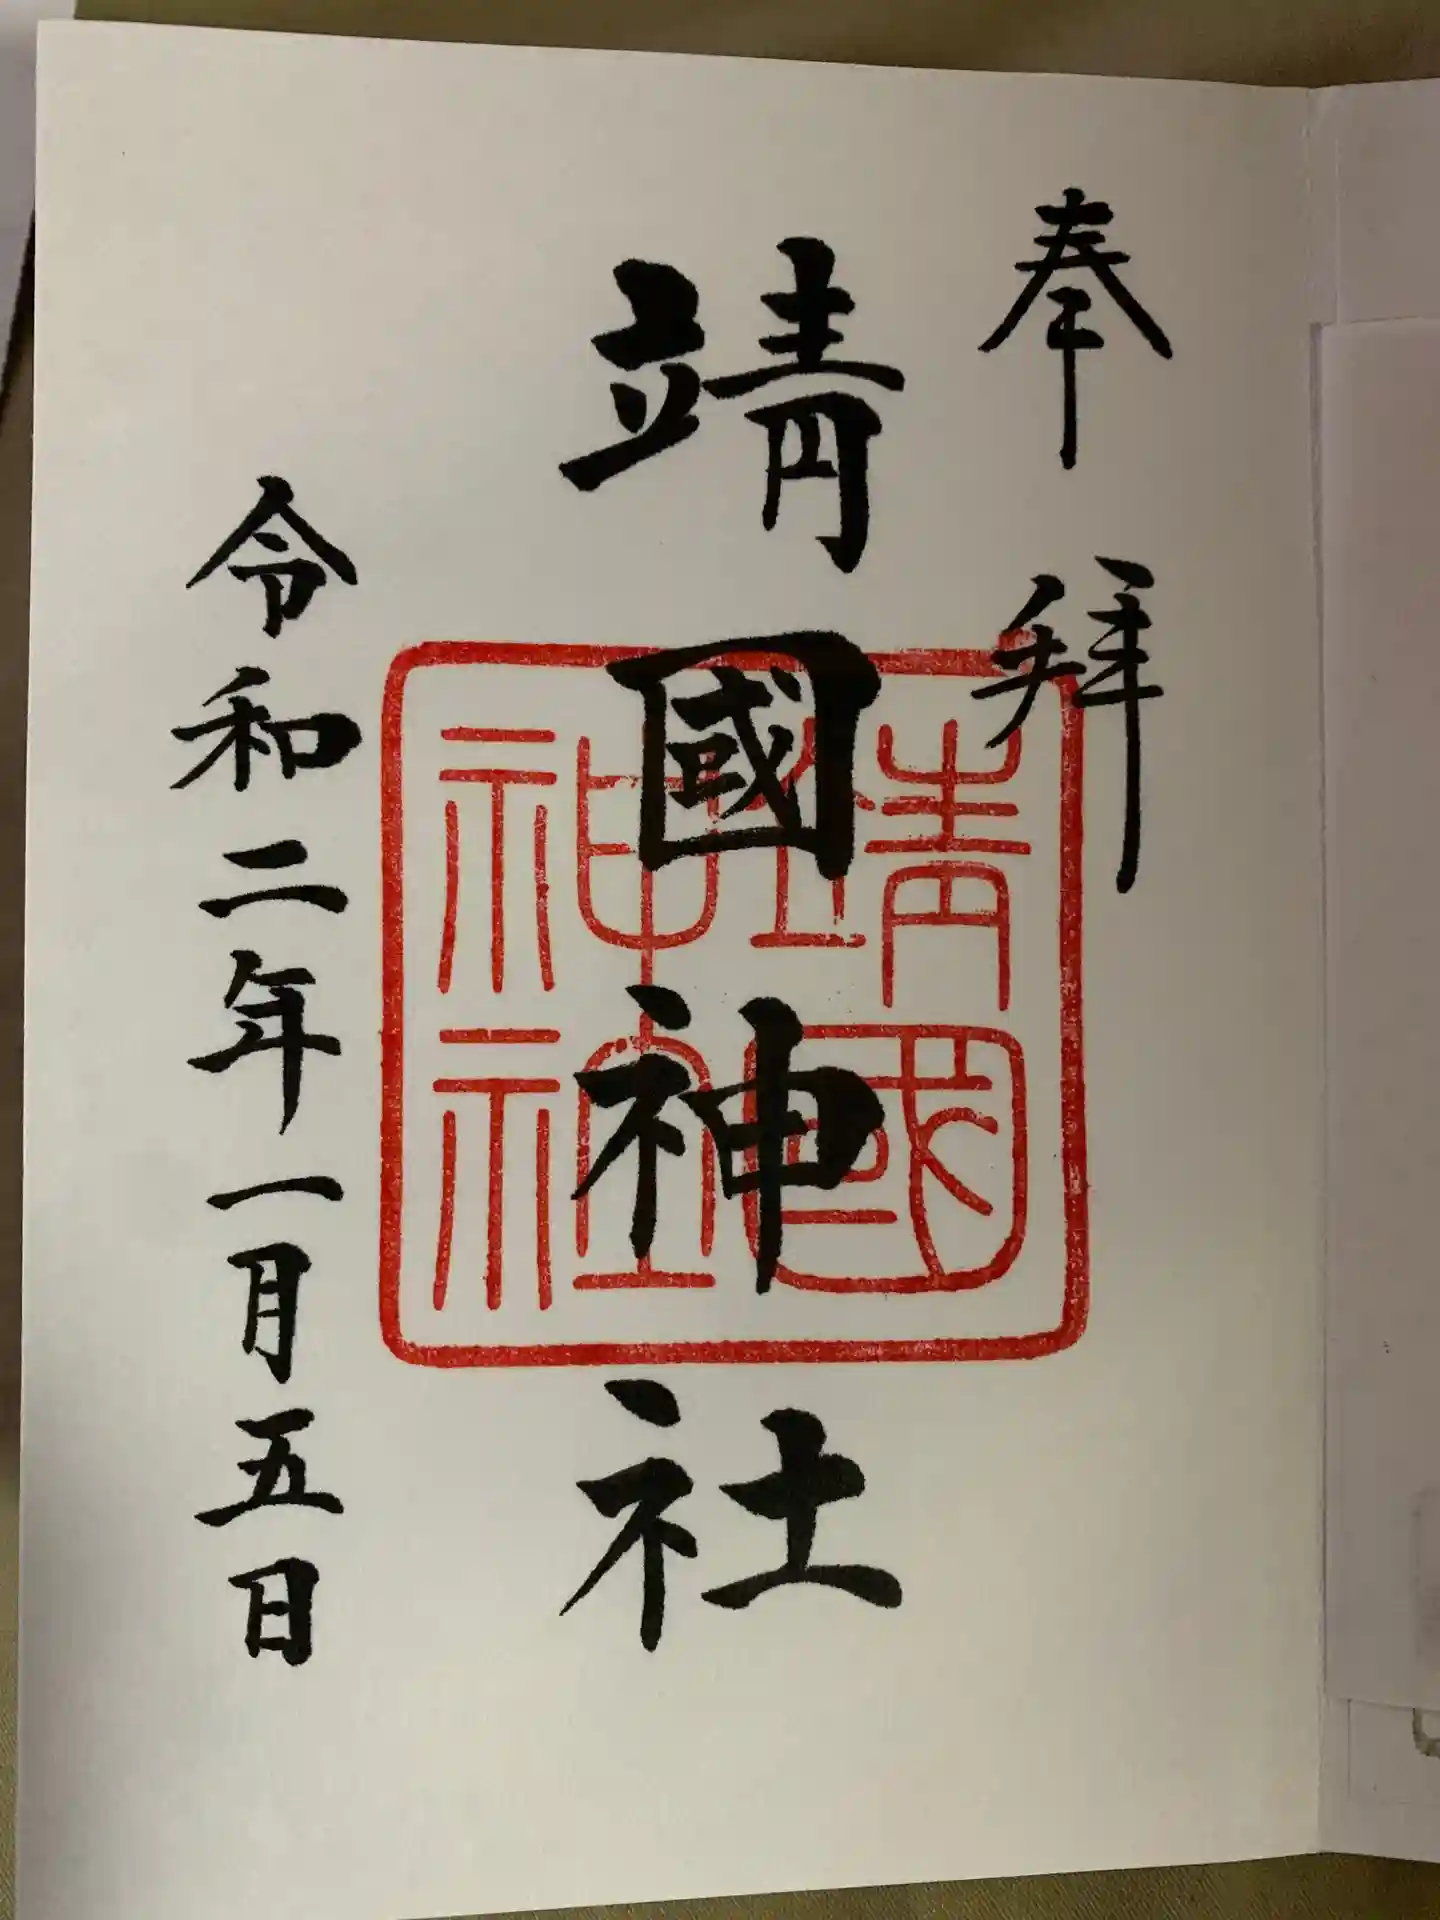 奉拜
靖國神社
靖國
神社
令和二年一月五日